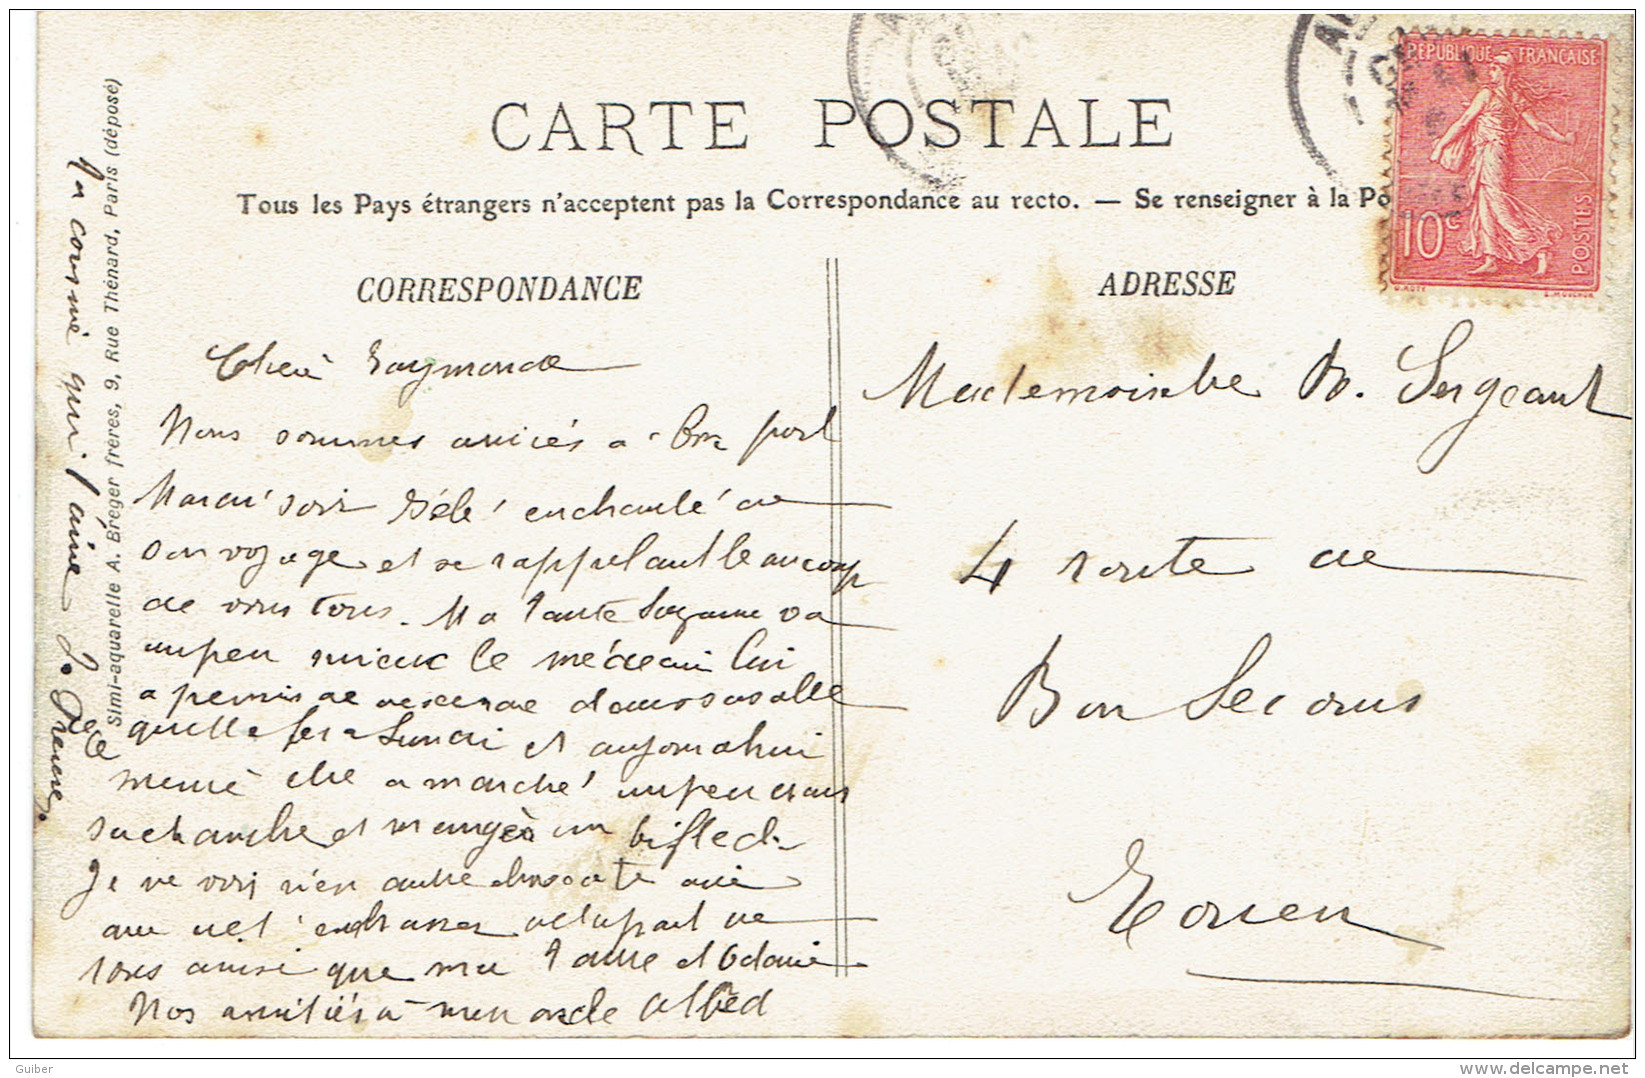 CARTE POSTALE
Tous les Pays étrangers n'acceptent pas la Correspondance au recto. — Se renseigner à la Po
RÉPUBLIQUE FRANÇAISE
10c
POSTES
CORRESPONDANCE
ADRESSE
Cherè Raymonde
Nous sommes arrivés a bon port
Mardi soir enchanté de
son voyage et se rappelant beaucoup
de vous tous. Ma tante Suzanne va
un peu mieux le médecin lui
a permis de descendre dans sa salle
quelle fera Lundi et aujourdhui
meme elle a marché un peu dans
sa chambre et mangèr un bifteck
Je ne vois rien autre chose a te dire
que de t'embrasser de la part de
tous ainsi que ma tante et Octavie
Nos amitiés à mon oncle Alfred
Ta cousine qui t'aime
Simi-aquarelle A. Breger frères, 9, Rue Thénard, Paris (déposé)
Mademoiselle R. Sergeant
4 route de
Bon Secours
Rouen
Guiber
www.delcampe.net